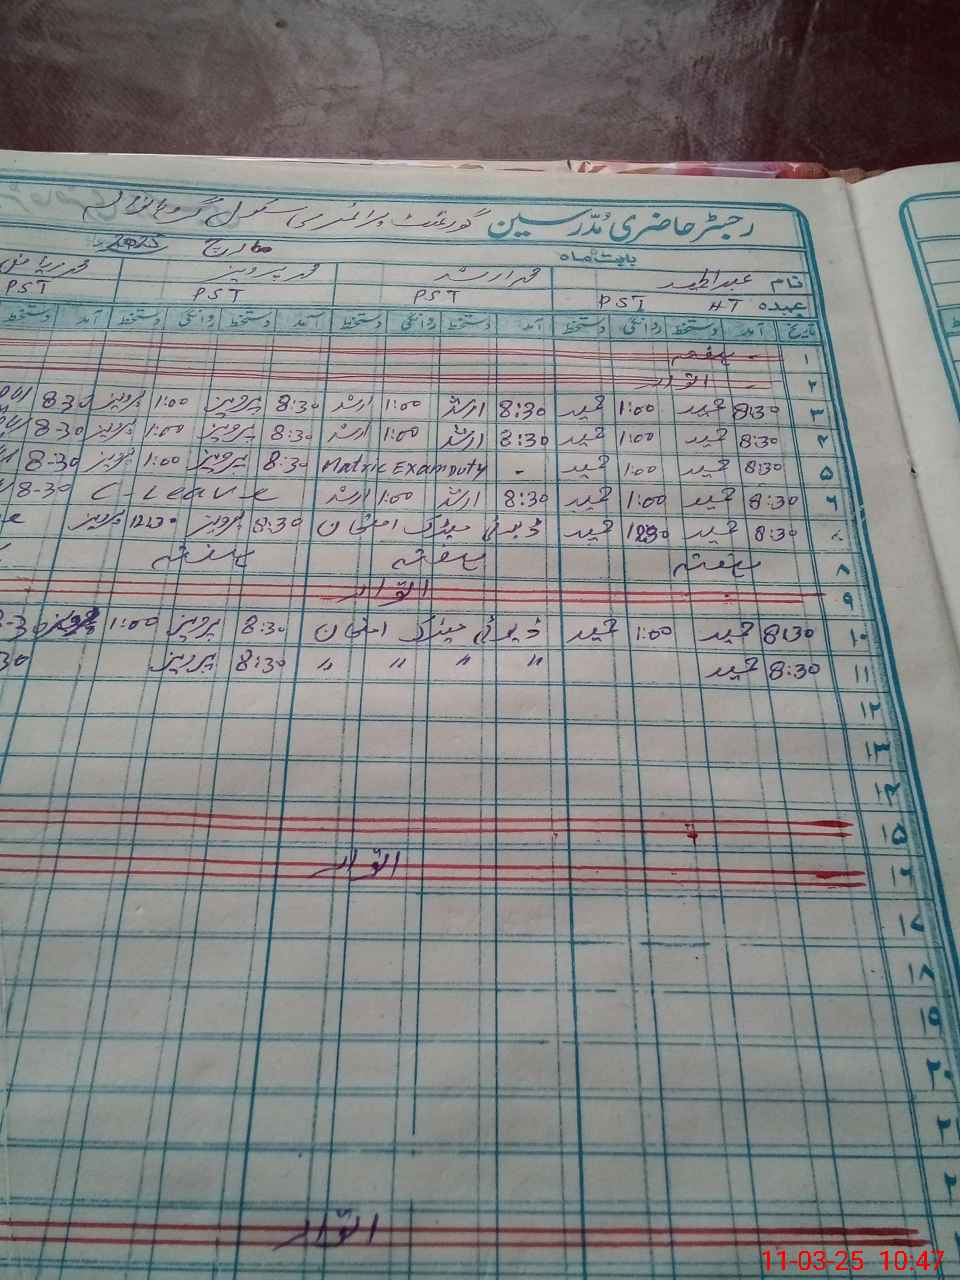 رجسٹر حاضری مُدّرسین گورنمنٹ پرائمری سکول
بابت ماہ مارچ 2025
نام عبدالحمید محمد ارشد محمد پرویز محمد ریاض
عہدہ HT PST PST PST PST
تاریخ آمد دستخط روانگی دستخط آمد دستخط روانگی دستخط آمد دستخط روانگی دستخط آمد دستخط
۱ ہفتہ
۲ اتوار
۳ 8:30 حمید 1:00 حمید 8:30 ارشد 1:00 ارشد 8:30 پرویز 1:00 پرویز 8:30
۴ 8:30 حمید 1:00 حمید 8:30 ارشد 1:00 ارشد 8:30 پرویز 1:00 پرویز 8-30
۵ 8:30 حمید 1:00 حمید - Matric Exam Duty 8:30 پرویز 1:00 پرویز 8-30
۶ 8:30 حمید 1:00 حمید 8:30 ارشد 1:00 ارشد C-Leave 8-30
8:30 حمید 1230 حمید ڈیوٹی میٹرک امتحان 8:30 پرویز 1230 پرویز
۸ ہفتہ ہفتہ ہفتہ
۹ اتوار
۱۰ 8:30 حمید 1:00 حمید ڈیوٹی میٹرک امتحان 8:30 پرویز 1:00 پرویز
۱۱ 8:30 حمید " " " " 8:30 پرویز 30
۱۲
۱۳
۱۴
۱۵
۱۶ اتوار
۱۷
۱۸
۱۹
۲۰
اتوار
11-03-25 10:47